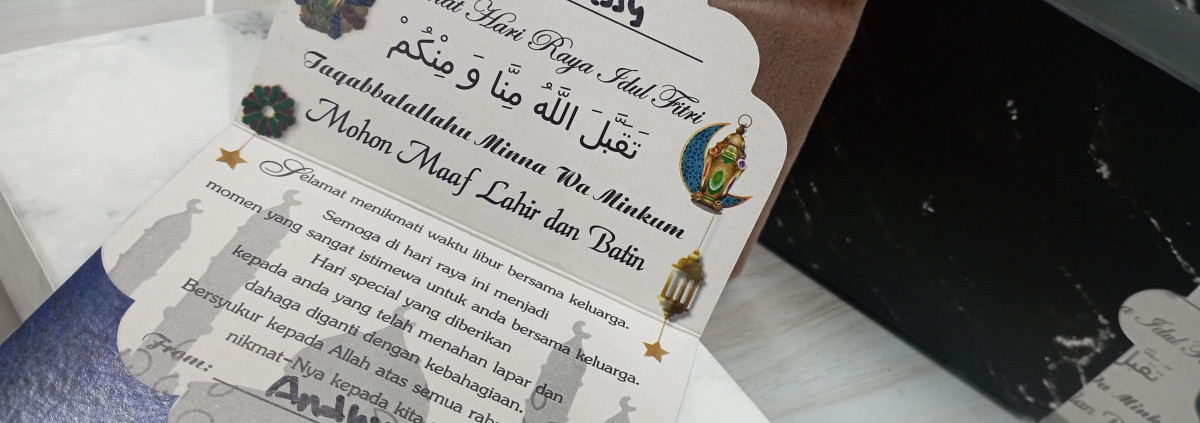 Hari Raya Idul Fitri
تَقَبَّلَ اللَّهُ مِنَّا وَ مِنْكُمْ
Taqabbalallahu Minna Wa Minkum
Mohon Maaf Lahir dan Batin
Selamat menikmati waktu libur bersama keluarga.
Semoga di hari raya ini menjadi
momen yang sangat istimewa untuk anda bersama keluarga.
Hari special yang diberikan
kepada anda yang telah menahan lapar dan
dahaga diganti dengan kebahagiaan.
Bersyukur kepada Allah atas semua
nikmat-Nya kepada kita
From:
Idul